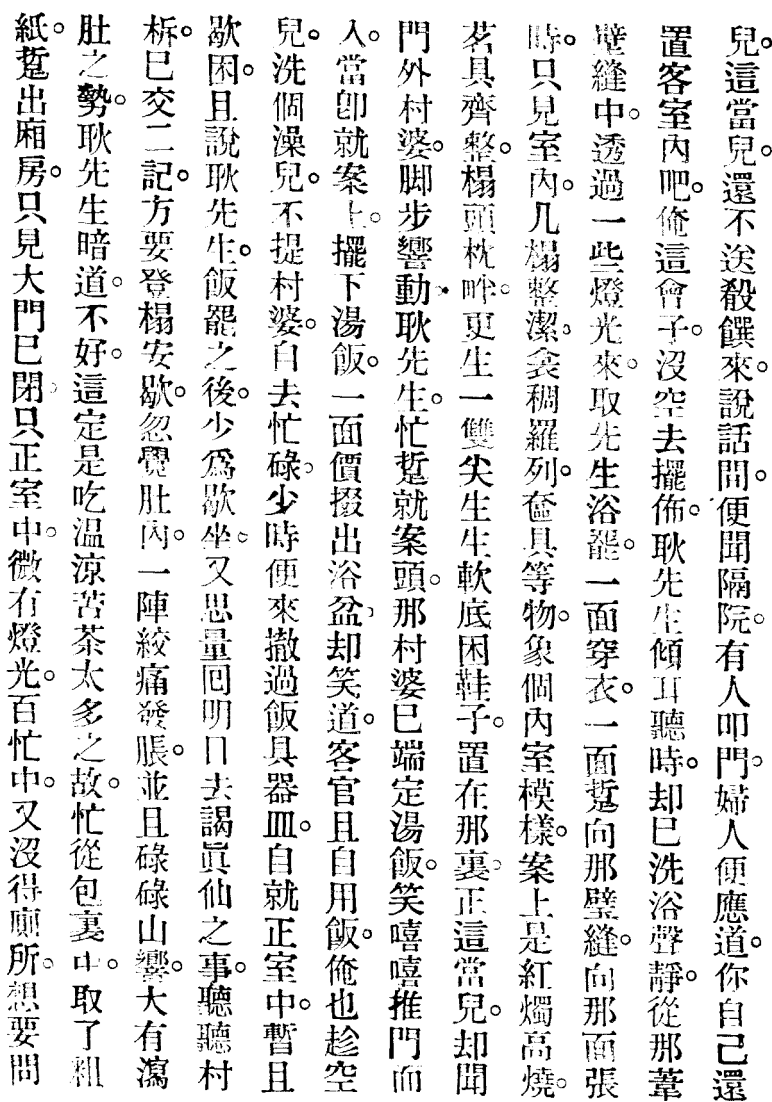 兒。這當兒。還不送殺饌來。說話間。便聞隔院。有人叩門。婦人便應道。你自己還
置客室內吧。俺這會子。沒空去擺佈。耿先生傾耳聽時。却已洗浴聲靜。從那葦
壁縫中。透過一些燈光來。取先生浴罷。一面穿衣。一面踅向那壁縫。向那面張
時。只見室內。几榻整潔。衾稠羅列。奩具等物。象個內室模樣。案上是紅燭高燒。
茗具齊整。榻頭枕畔。更生一雙尖生生軟底困鞋子。置在那裏。正這當兒。却聞
門外村婆。脚步響動。耿先生。忙踅就案頭。那村婆已端定湯飯。笑嘻嘻推門而
入。當卽就案上。擺下湯飯。一面價掇出浴盆。却笑道。客官且自用飯。俺也趁空
兒。洗個澡兒。不提村婆。自去忙碌。少時便來撤過飯具器皿。自就正室中。暫且
歇困。且說耿先生。飯罷之後。少爲歇坐。又思量囘明日去謁眞仙之事。聽聽村
柝。已交二記。方要登榻安歇。忽覺肚內。一陣絞痛發脹。並且碌碌山響。大有瀉
肚之勢。耿先生暗道。不好。這定是吃温涼苦茶太多之故。忙從包裏中。取了粗
紙。踅出廂房。只見大門已閉。只正室中。微有燈光。百忙中。又沒得廁所。想要問